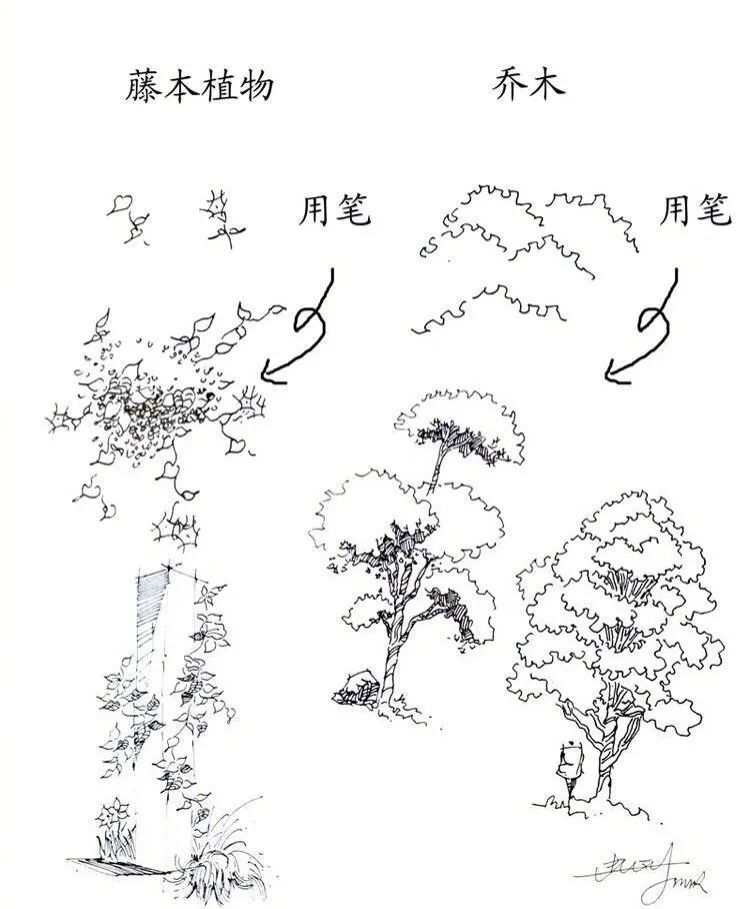 藤本植物
乔木
用笔
用笔